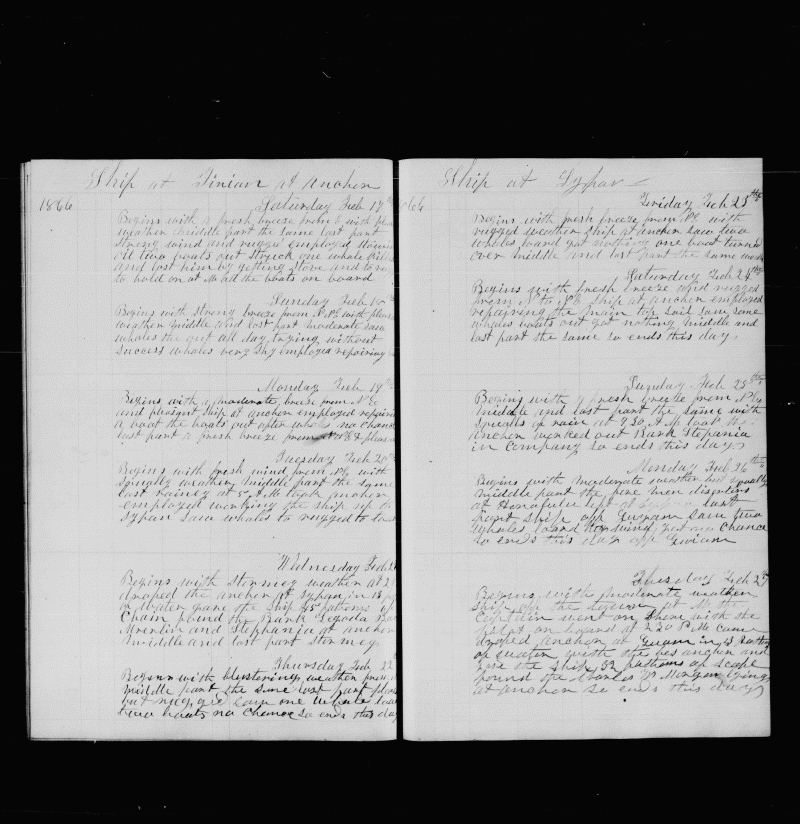 Ship at Tinian at Anchor
1866 Saturday Feb 17th
Begins with a fresh breeze from E with
weather middle part the same last part
strong wind and rugged employed
oil two boats out struck one whale
and lost him by getting stove and
to hold on at M all the boats on board
Sunday Feb 18
Begins with strong breeze from N NE with
weather middle and last part moderate saw
whales the out all day trying without
success whales very shy employed repairing
Monday Feb 19th
Begins with a moderate breeze from NE
and pleasant ship at anchor employed
a boat the boats out after whale no chance
last part a fresh breeze from
Tuesday Feb 20th
Begins with fresh wind from NE with
squally weather middle part the same
last rainey at 5 A.M took anchor
employed working the ship up to
Sypan saw whales to rugged to
Wednesday Feb 21
Begins with stormey weather at 2
droped the anchor at Sypan in 18
of Water gave the ship 45 fathoms of
Chain found the Bark
Merlin and Stephania at anchor
middle and last part Stormey
Thursday Feb 22
Begins with blustering weather from
middle part the same last part
but saw one whale
two boats no chance so ends this day
Ship at Sypan
1866
Friday Feb 23th
Begins with fresh breeze from NE with
rugged weather ship at anchor saw two
whales loard got nothing one boat turned
over middle and last part the same
Saturday Feb 24th
Begins with fresh breeze and rugged
from N to NE ship at anchor employed
repairing the main top sail saw some
whales boats out got nothing middle and
last part the same so ends this day
Sunday Feb 25th
Begins with a fresh breeze from NE
middle and last part the same with
squals of rain at 9.30 A.M took the
anchor worked out Bark Stepania
in company so ends this day
Monday Feb 26th
Begins with moderate weather but squally
middle part the
at last
part ship off Guam saw two
whales loard no chance
so ends this day off Guam
Thursday Feb 27
Begins with moderate weather
ship off the at M the
Captain went on Shore with the
on board at 2.30 P.M came
droped anchor at Guam in 13 fathoms
of water with the bes anchor and
gave the ship 52 fathoms of scope
found the Charles W Morgan lying
at anchor so ends this day